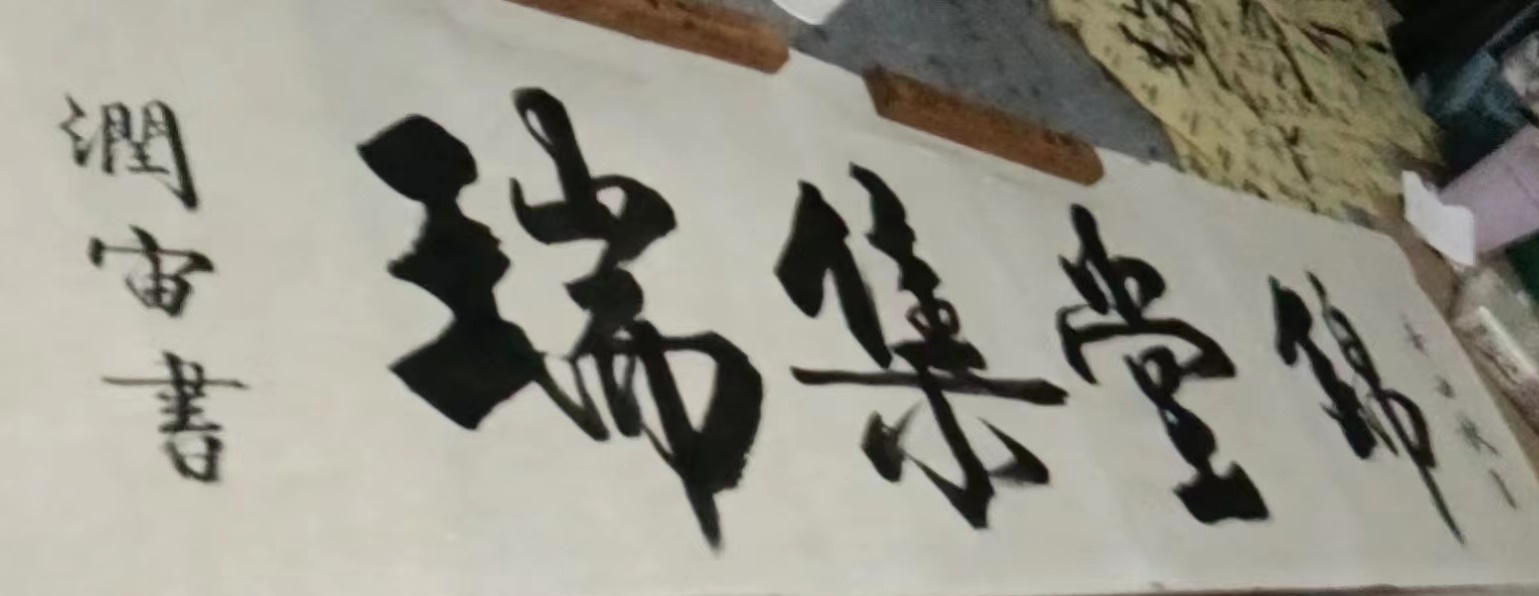 錦堂集瑞
潤宙書